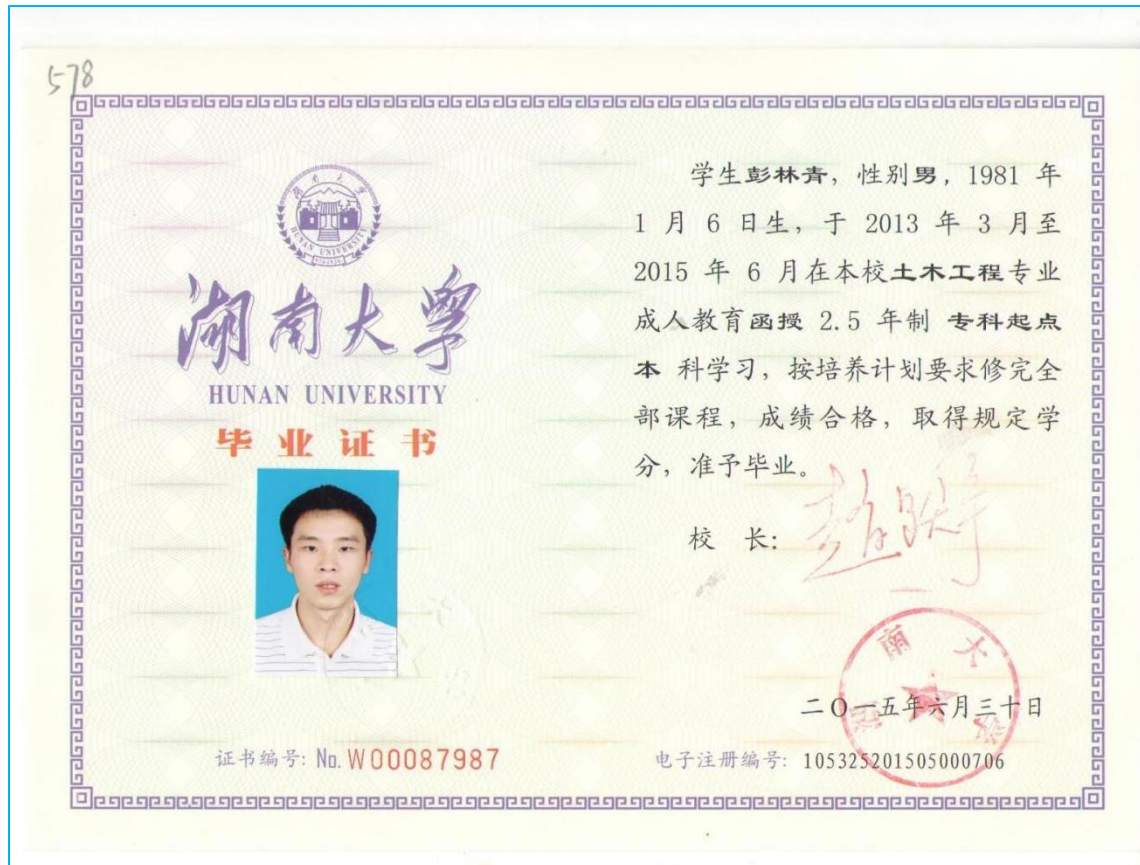 578
湖南大学
HUNAN UNIVERSITY
湖南大学
HUNAN UNIVERSITY
毕业证书
证书编号: No. W00087987
学生彭林青，性别男，1981 年
1 月 6 日生，于 2013 年 3 月至
2015 年 6 月在本校土木工程专业
成人教育函授 2.5 年制 专科起点
本 科学习，按培养计划要求修完全
部课程，成绩合格，取得规定学
分，准予毕业。
校 长:
湖南大学
二〇一五年六月三十日
电子注册编号: 105325201505000706